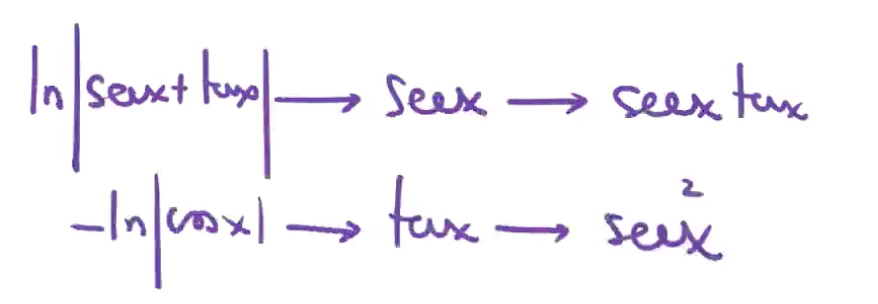 ln|secx+tanx| → secx → secx tanx
-ln|cosx| → tanx → sec²x